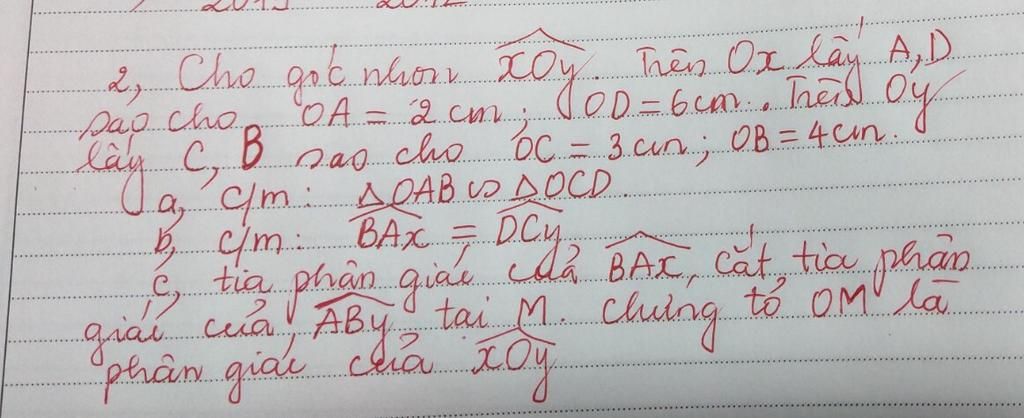 2, Cho góc nhọn xOy. Trên Ox lấy A, D
sao cho OA = 2cm; OD = 6cm. Trên Oy
lấy C, B sao cho OC = 3cm; OB = 4cm.
a, c/m: △OAB ∽ △OCD.
b, c/m: BAx = DCy
c, tia phân giác của BAx, cắt tia phân
giác của ABy tại M. Chứng tỏ OM là
phân giác của xOy